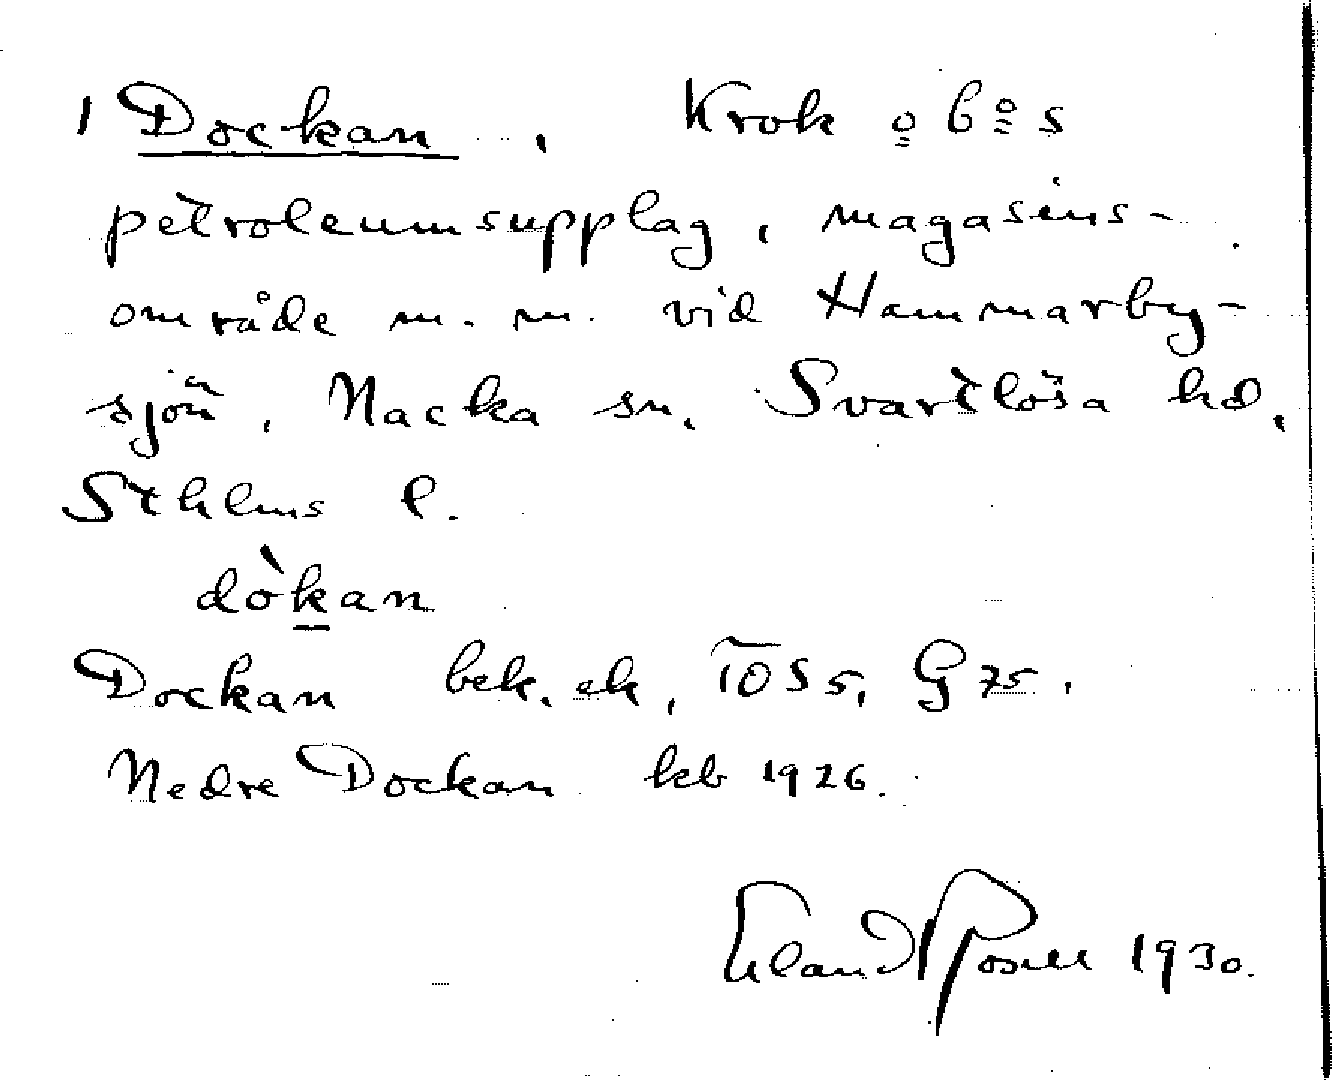 1 Dockan, Krok o b o s
petroleumsupplag, magasins-
område m. m. vid Hammarby-
sjön, Nacka sn, Svartlösa hd,
Sthlms l.
dòkan
Dockan bek. ek, TÖS 5, G 75.
Nedre Dockan kb 1926.
Erland Rosell 1930.